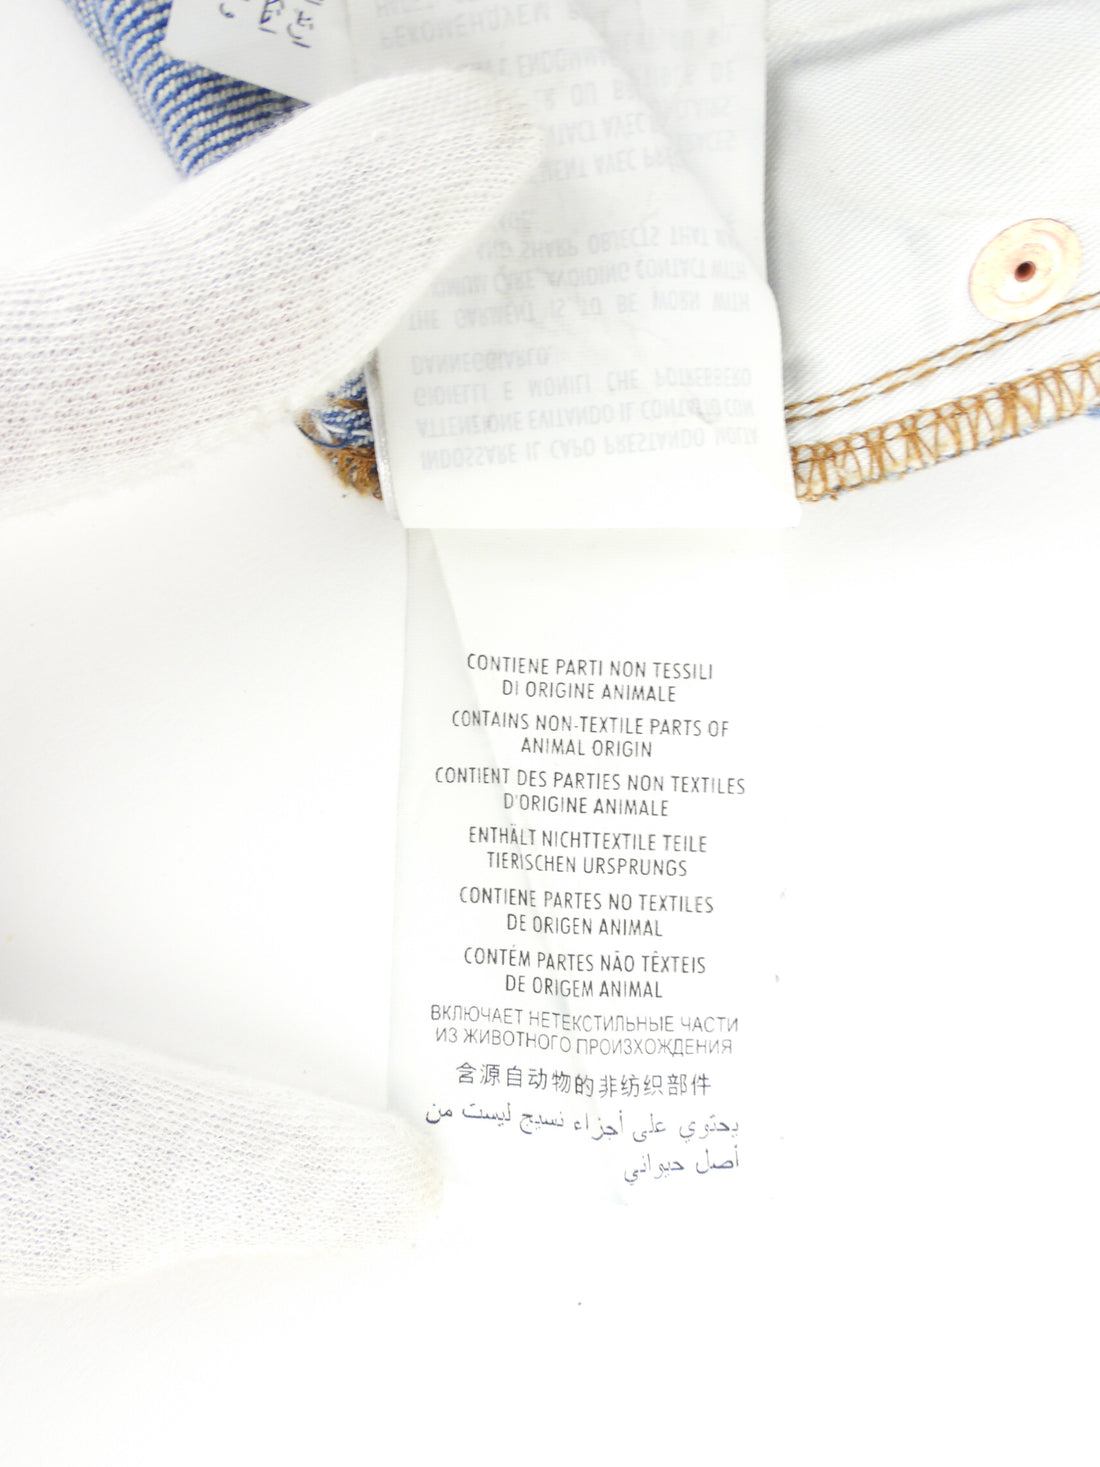 INDOSSARE IL CAPO PRESTANDO MOLTA
ATTENZIONE EVITANDO IL CONTATTO CON
GIOIELLI E MONILI CHE POTREBBERO
DANNEGGIARLO.
THE GARMENT IS TO BE WORN WITH
CARE, AVOIDING CONTACT WITH
AND SHARP OBJECTS THAT
AVEC
AVEC
OU
DE
РЕКОМЕНДУЕМ
CONTIENE PARTI NON TESSILI
DI ORIGINE ANIMALE
CONTAINS NON-TEXTILE PARTS OF
ANIMAL ORIGIN
CONTIENT DES PARTIES NON TEXTILES
D'ORIGINE ANIMALE
ENTHÄLT NICHTTEXTILE TEILE
TIERISCHEN URSPRUNGS
CONTIENE PARTES NO TEXTILES
DE ORIGEN ANIMAL
CONTÉM PARTES NÃO TÊXTEIS
DE ORIGEM ANIMAL
ВКЛЮЧАЕТ НЕТЕКСТИЛЬНЫЕ ЧАСТИ
ИЗ ЖИВОТНОГО ПРОИЗХОЖДЕНИЯ
含源自动物的非纺织部件
يحتوي على أجزاء نسيج ليست من
أصل حيواني